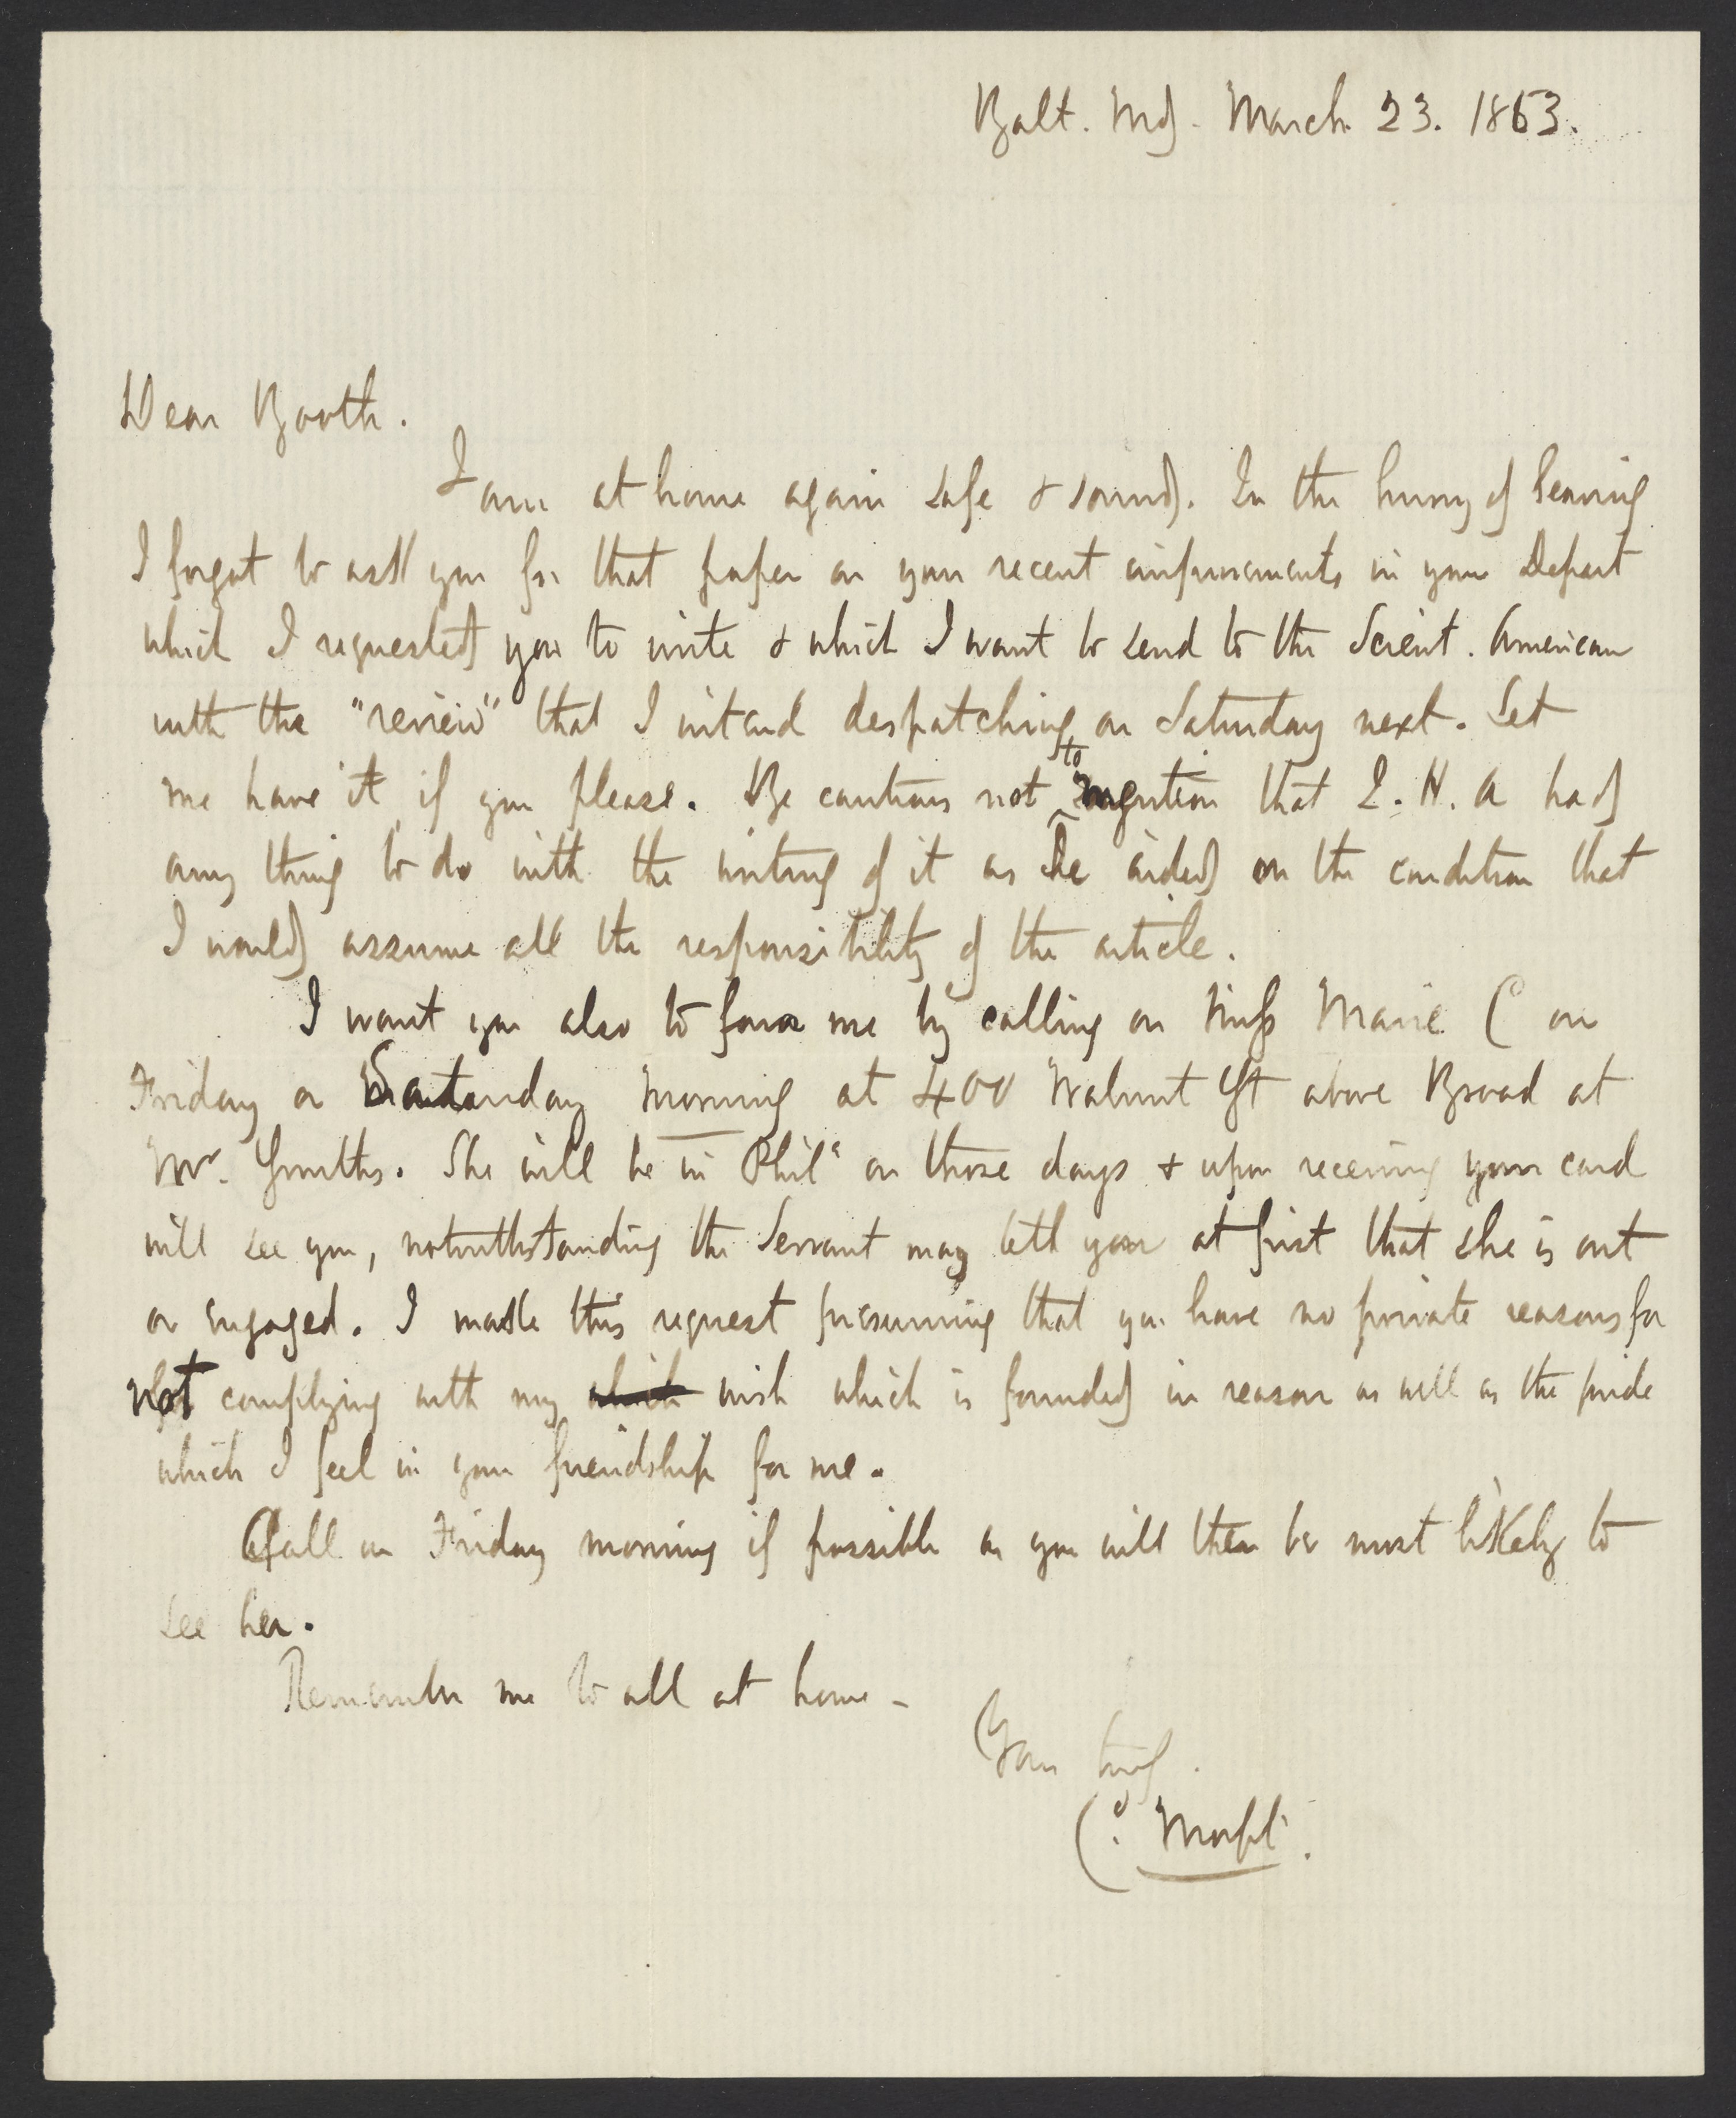 Balt. Md. March 23. 1863.
Dear Booth.
I am at home again safe & sound. In the hurry of leaving
I forgot to ask you for that paper on your recent improvements in your Depart
which I requested you to write & which I want to send to the Scient. American
with the "review" that I intend despatching on Saturday next. Let
me have it if you please. Be cautious not to mention that L. H. A had
any thing to do with the writing of it as he aided on the condition that
I would assume all the responsibility of the article.
I want you also to favor me by calling on Miss Marie C on
Friday or Saturday morning at 400 Walnut St above Broad at
Mr. Smiths. She will be in Phila on those days & upon receiving your card
will see you, notwithstanding the Servant may tell you at first that she is out
or engaged. I make this request presuming that you have no private reasons for
not complying with my which wish which is founded in reason as well as the pride
which I feel in your friendship for me.
Call on Friday morning if possible as you will then be most likely to
see her.
Remember me to all at home -
Yours truly.
C. Morfit.